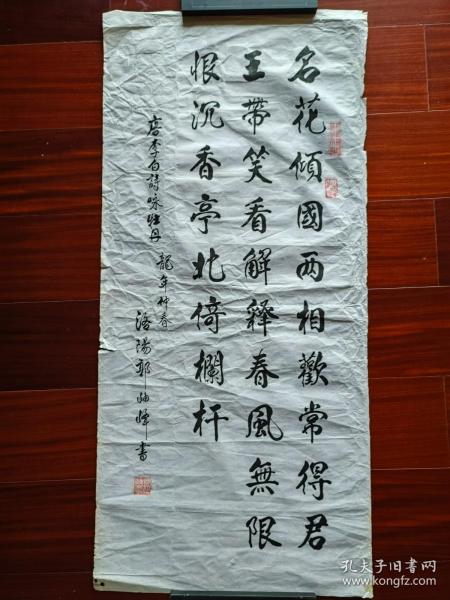 名花傾國两相歡常得君
王帶笑看解釋春風無限
恨沉香亭北倚欄杆
唐李白詩咏牡丹 龍年仲春
洛陽郭 書
孔夫子旧书网
www.kongfz.com